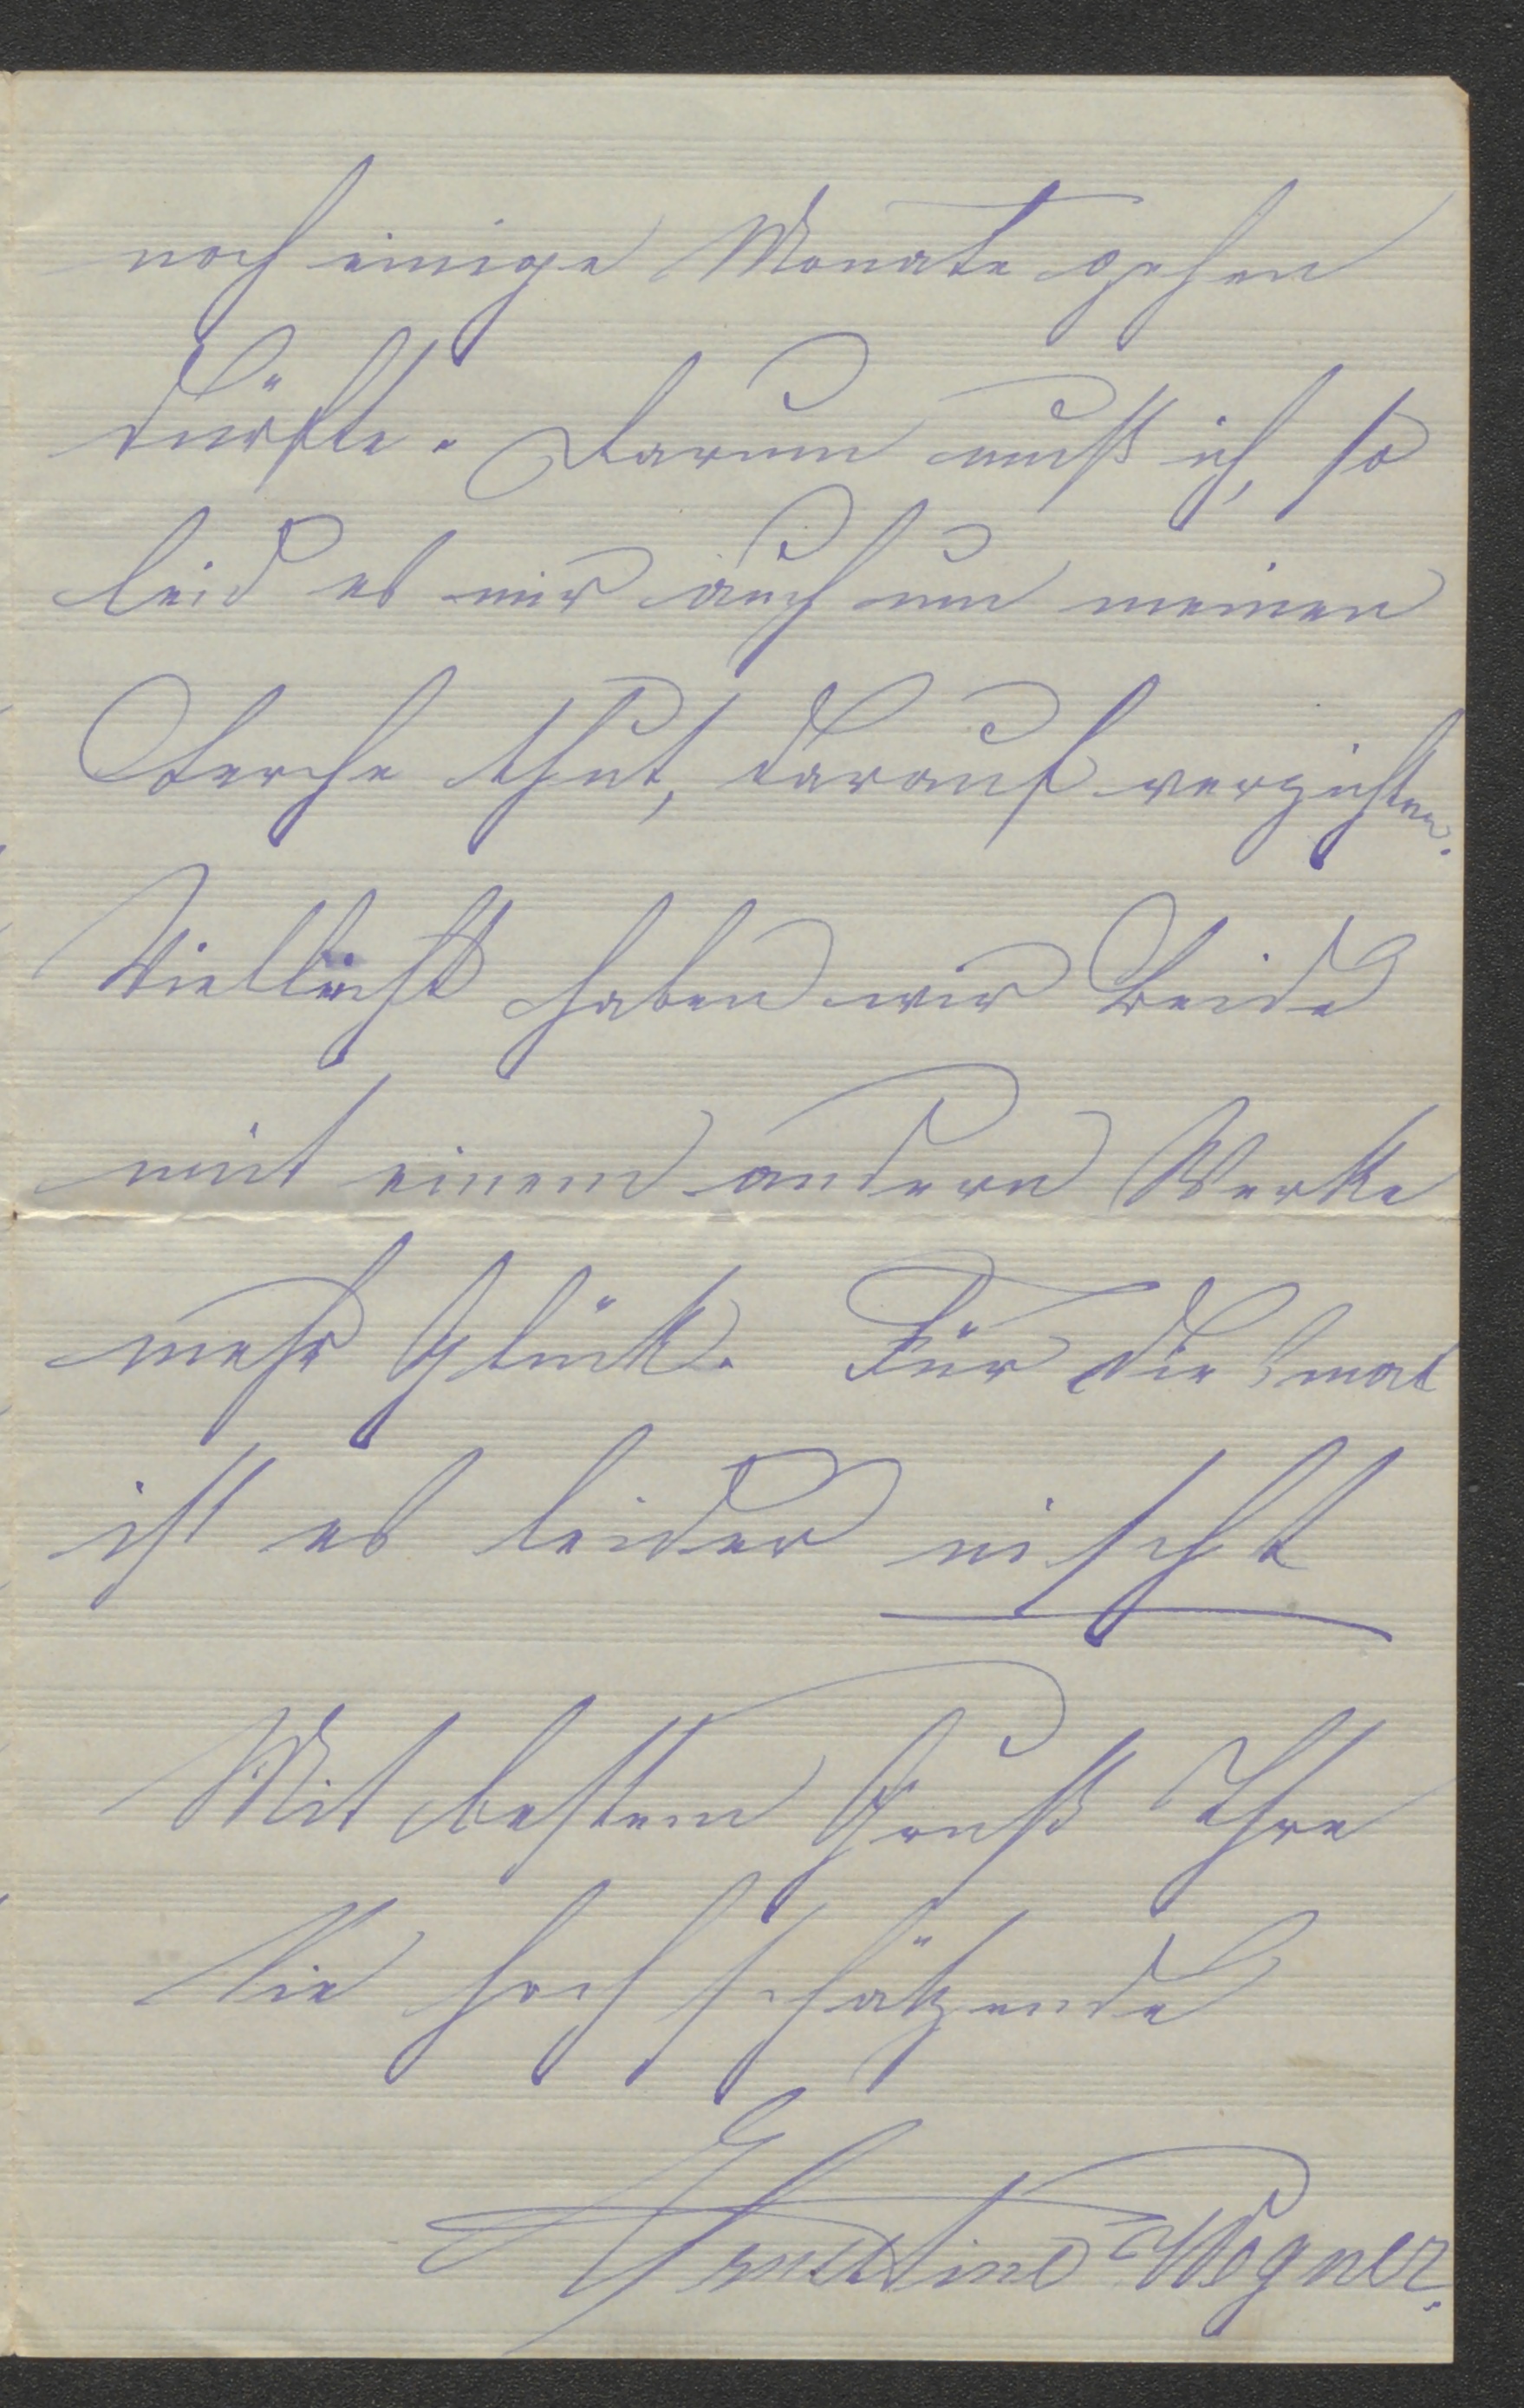 noch einige Monate gehen
dürfte. Darum muß ich, so
leid es mir auch um meinen
thut, darauf verzichten.
Vielleicht haben wir Beide
mit einem andern Werke
mehr Glück. Für diesmal
ist es leider nischt
Mit bestem Gruß Ihre
Sie hochschätzende
Ernestine Wegner.